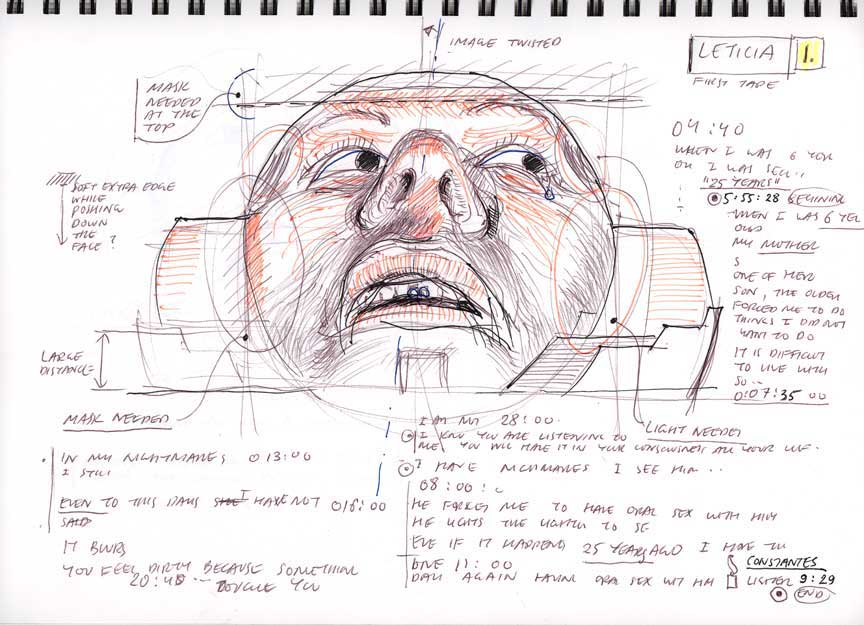 IMAGE TWISTED
LETICIA 1.
FIRST TAPE
MASK
NEEDED
AT THE
TOP
SOFT EXTRA EDGE
WHILE
PUSHING
DOWN
THE
FACE?
LARGE
DISTANCE
MASK NEEDED
LIGHT NEEDED
04:40
WHEN I WAS 6 YER
OLD I WAS
"25 YEARS"
5:55:28 BEGINING
WHEN I WAS 6 YER
OLD
MY MOTHER
S
ONE OF HER
SON, THE OLDER
FORCED ME TO DO
THINGS I DID NOT
WANT TO DO
IT IS DIFFICULT
TO LIVE WITH
SO..
0:07:35 00
IN MY NIGHTMARES 013:00
I STILL
EVEN TO THIS DAYS I HAVE NOT 016:00
SAID
IT BLURS
YOU FEEL DIRTY BECAUSE SOMETHING
20:40 ... YOU
I AM MY 28:00.
I KNOW YOU ARE LISTENING TO
ME YOU WILL HAVE IT IN YOUR CONSCIOUSNESS ALL YOUR LIFE.
I HAVE NIGHTMARES I SEE HIM ..
08:00:
HE FORCED ME TO HAVE ORAL SEX WITH HIM
HE LIGHTS THE LIGHTER TO SE
EVE IF IT HAPPEND 25 YEARS AGO I HAVE TO
LIVE 11:00
DAY AGAIN HAVING ORAL SEX WIT HIM
CONSTANTES
LIGHTER 9:29
END